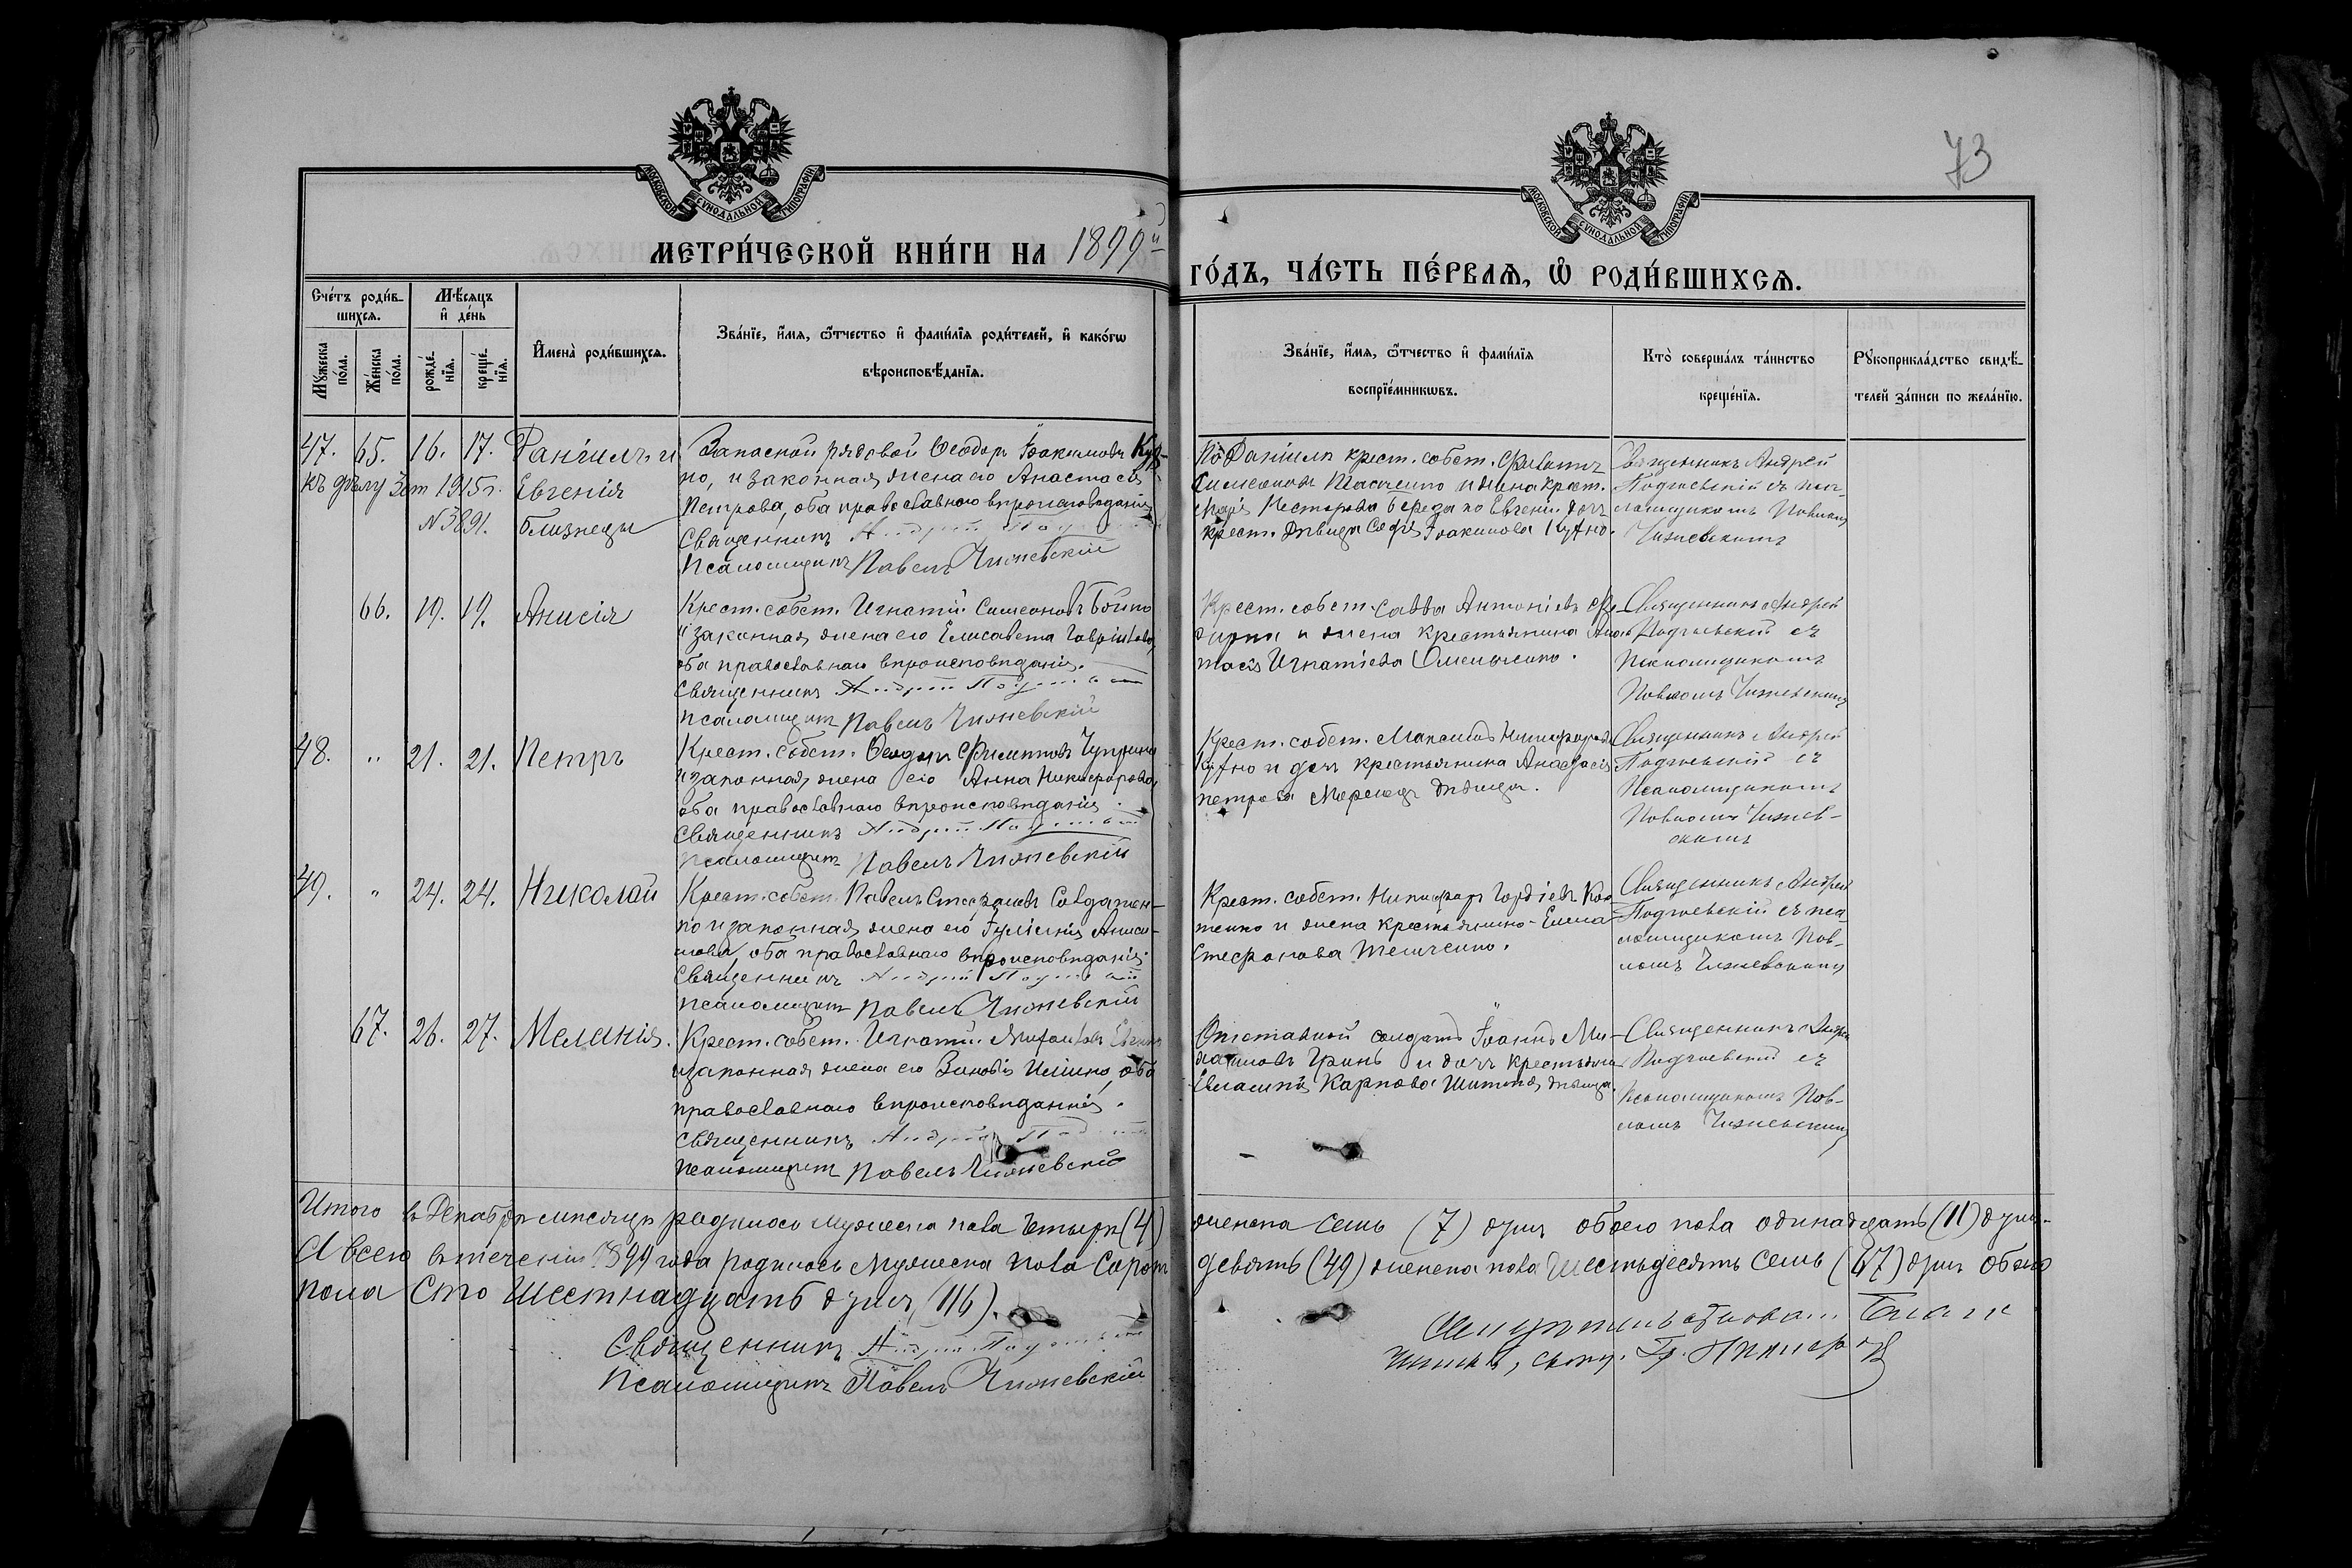 73
МОСКОВСКОЙ СѴНОДАЛЬНОЙ ТИПОГРАФІИ
МОСКОВСКОЙ СѴНОДАЛЬНОЙ ТИПОГРАФІИ
МЕТРИ́ЧЕСКОЙ КНИ́ГИ НА 1899й
ГО́ДЪ, ЧА́СТЬ ПЕ́РВАѦ, Ѡ҆ РОДИ́ВШИХСѦ.
Сче́тъ роди́в-
шихсѧ.
Мѣ́сѧцъ
и҆ де́нь
Мꙋ́жеска
по́ла.
Же́нска
по́ла.
рожде́-
нїѧ.
креще́-
нїѧ.
И҆мена̀ роди́вшихсѧ.
Зва́нїе, и҆́мѧ, ѻ҆́тчество и҆ фами́лїѧ роди́телей, и҆ како́гѡ
вѣроисповѣ́данїѧ.
Зва́нїе, и҆́мѧ, ѻ҆́тчество и҆ фами́лїѧ
воспрїе́мникѡвъ.
Кто̀ соверша́лъ та́инство
креще́нїѧ.
Рꙋкоприкла́дство свидѣ́-
телей за́писи по жела́нїю.
47. 65. 16. 17. Даніилъ и
къ дѣлу 3 ст 1915 г. Евгенія
№ 3891. близнецы
Запасной рядовой Ѳеодоръ Іоакимовъ Куф-
но, и законная жена его Анастасія
Петрова, оба православнаго вѣроисповѣданія
Священникъ Андрей
Псаломщикъ Павелъ Чижевскій
По Даніилѣ крест. собст. Филиппъ
Симеоновъ и жена крест.
Марія Несторова Береза по Евгеніи дочь
крест. дѣвица Софія Іоакимова Куфно.
Священникъ Андрей
Подгаевскій съ пса-
ломщикомъ Павломъ
Чижевскимъ
66. 19. 19. Анисія
Крест. собст. Игнатій Симеоновъ Бойко
и законная жена его Елисавета Гавріилова,
оба православнаго вѣроисповѣданія.
Священникъ Андрей
Псаломщикъ Павелъ Чижевскій
Крест. собст. Савва Антоніевъ
и жена крестьянина Анас-
тасія Игнатіева Омельченко.
Священникъ Андрей
Подгаевскій съ
Псаломщикомъ
Павломъ Чижевскимъ
48. " 21. 21. Петръ
Крест. собст. Ѳеодоръ Филипповъ Чуприна
и законная жена его Анна Никифорова,
оба православнаго вѣроисповѣданія.
Священникъ Андрей
Псаломщикъ Павелъ Чижевскій
Крест. собст. Максимъ Никифоровъ
Куфно и дочь крестьянина Анастасія
Петрова дѣвица.
Священникъ Андрей
Подгаевскій съ
Псаломщикомъ
Павломъ Чижев-
скимъ
49. " 24. 24. Николай
Крест. собст. Павелъ Стефановъ Солдатен-
ко и законная жена его Іуліанія Аниси-
мова, оба православнаго вѣроисповѣданія.
Священникъ Андрей
Псаломщикъ Павелъ Чижевскій
Крест. собст. Никифоръ Гордіевъ
и жена крестьянина Елена
Стефанова
Священникъ Андрей
Подгаевскій съ пса-
ломщикомъ Пав-
ломъ Чижевскимъ
67. 26. 27. Меланія.
Крест. собст. Игнатій
и законная жена его Зиновія оба
православнаго вѣроисповѣданнія.
Священникъ Андрей
Псаломщикъ Павелъ Чижевскій
Отставной солдатъ Іоаннъ Ми-
хаиловъ Гринь и дочь крестьянина
Евлампія Карпова дѣвица.
Священникъ Андрей
Подгаевскій съ
Псаломщикомъ Пав-
ломъ Чижевскимъ
Итого въ Декабрѣ мѣсяцѣ родилось мужеска пола четыре (4) женска семь (7) душъ обоего пола одинадцать (11) душъ.
А всего втеченіи 1899 года родилось мужеска пола сорокъ девять (49) женска пола шестьдесятъ семь (67) душъ обоего
пола Сто Шестнадцать душъ (116).
Священникъ Андрей
Псаломщикъ Павелъ Чижевскій